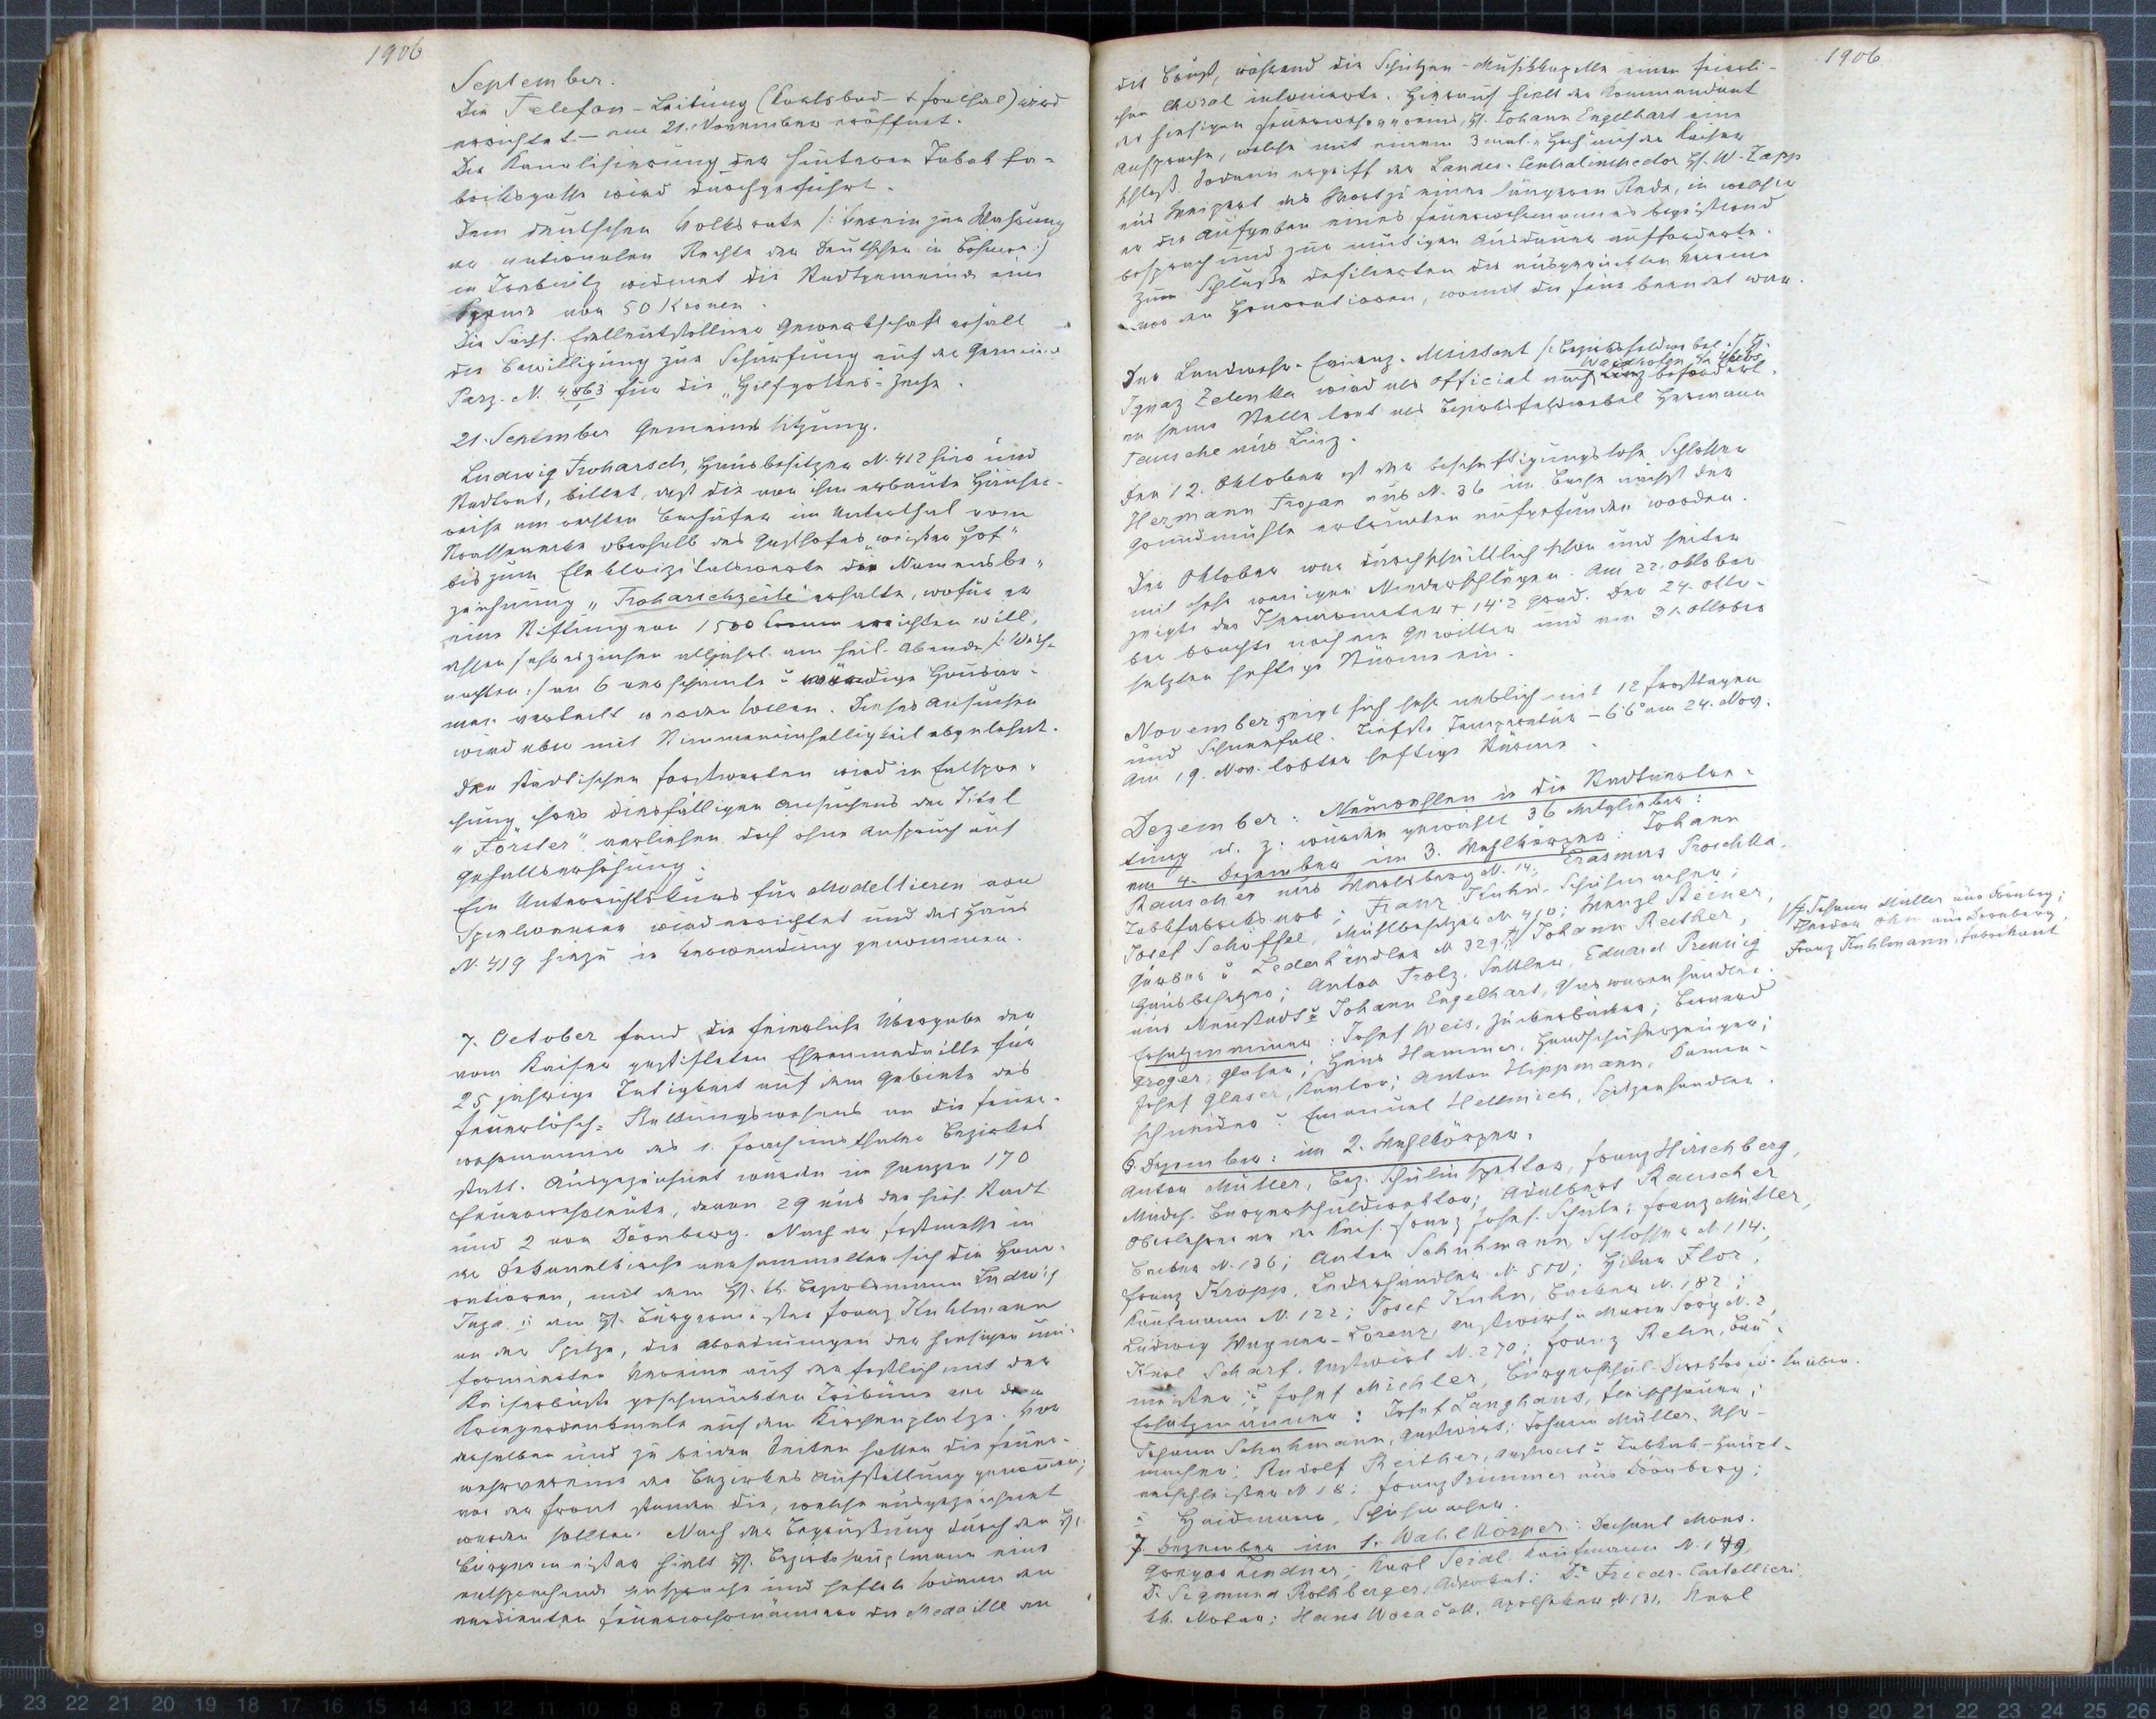 1906
September.
Die Telefon-Leitung (Karlsbad - Joachimsthal) wird
errichtet - am 21. November eröffnet.
Die Kanalisierung der hinteren Tabak fa-
briksgasse wird durchgeführt.
Dem deutschen Volksrate /: Verein zur Wahrung
der nationalen Rechte der Deutschen in Böhmen :/
in Trebnitz widmet die Stadtgemeinde eine
Spende von 50 Kronen.
Die Sächs. Edelleutstollner Gewerkschaft erhält
die Bewilligung zur Schürfung auf der Gemeinde
Parz. N. 4863 für die "Hilfgottes"-Zeche.
21. September Gemeindesitzung.
Ludwig Troharsch, Hausbesitzer N. 412 hier und
Stadtrat, bittet, daß die von ihm erbaute Häuser-
reihe am rechten Bachufer im Unterthal vom
Strassenecke oberhalb des Gasthofes "weißer Hof"
bis zum Elektrizitätswerke die Namensbe-
zeichnung "Troharschzeile" erhalte, wofür er
eine Stiftung von 1500 Kronen errichten will,
dessen Jahreszinsen alljährl. am heil. Abende /: Weih-
nachten :/ an 6 verschämte u würdige Hausar-
men verteilt werden sollen. Dieses Ansuchen
wird aber mit Stimmeneinhelligkeit abgelehnt.
Den städtischen Forstwarten wird in Entspre-
chung ihres diesfälligen Ansuchens der Titel
"Förster" verliehen doch ohne Anspruch auf
Gehaltserhöhung.
Ein Unterrichtskurs für Modellieren von
Spielwaren wird errichtet und das Haus
N. 419 hiezu in Verwendung genommen.
7. October fand die feierliche Übergabe der
vom Kaiser gestifteten Ehrenmedaille für
25 jährige Tätigkeit auf dem Gebiete des
Feuerlösch- Rettungswesens an die Feuer-
wehrmänner des 1. Joachimsthaler Bezirkes
statt. Ausgezeichnet wurden im Ganzen 170
Feuerwehrleute, davon 29 aus der hies. Stadt
und 2 von Dürnberg. Nach der Festmesse in
der Dekanalkirche versammelten sich die Hono-
ratioren, mit dem H. k.k. Bezirkshauptmann Ludwig
u dem H. Bürgermeister Franz Kuhlmann
an der Spitze, die Abordnungen der hiesigen uni-
formierten Vereine auf der festlich mit der
Kaiserbüste geschmückten Tribüne vor dem
Kriegerdenkmale auf dem Kirchenplatze. Vor
derselben und zu beiden Seiten hatten die Feuer-
wehrvereine des Bezirkes Aufstellung genommen;
vor der Front standen die, welche ausgezeichnet
werden sollten. Nach der Begrüßung durch den H.
Bürgermeister hielt H. Bezirkshauptmann eine
entsprechende Ansprache und heftete sodann den
verdienten Feuerwehrmännern die Medaille an
1906
die Brust, während die Schützen-Musikkapelle einen feierli-
chen Choral intonierte. Hierauf hielt der Kommandant
des hiesigen Feuerwehrvereins, H. Johann Engelhart eine
Ansprache, welche mit einem 3 mal. "Hoch" auf den Kaiser
schloß. Sodann ergriff der Landes-Centralinspector H. W. Zapp
aus Weipert das Wort zu einer längeren Rede, in welcher
er die Aufgaben eines Feuerwehrmannes begeisternd
besprach und zur mutigen Ausdauer aufforderte.
Zum Schluße defilierten die ausgerückten Vereine
vor den Honoratioren, womit die Feier beendet war.
Der Landwehr-Evidenz-Assistent /: Bezirksfeldwebel :/ H.
Waidhofen an Ybbs
Ignaz Zelenka wird als Official nach befördert.
an seine Stelle tritt als Bezirksfeldwebel Hermann
Tausche aus Linz.
Den 12. Oktober ist der beschäftigungslose Schlosser
Hermann Trojan aus N. 36 im Bache nächst der
Grundmühle ertrunken aufgefunden worden.
Der Oktober war durchschnittlich schön und heiter
mit sehr wenigen Niederschlägen. Am 22. Oktober
zeigte das Thermometer + 14.2 Grad. Der 24. Okto-
ber brachte noch ein Gewitter und am 31. Oktober
setzten heftige Stürme ein.
November zeigt sich sehr neblich - mit 12 Frosttagen
und Schneefall. Tiefste Temperatur - 6.6° am 24. Nov.
Am 19. Nov. tobten heftige Stürme.
Dezember: Neuwahlen in die Stadtvertre-
tung u. z. wurden gewählt 36 Mitglieder:
am 4. Dezember im 3. Wahlkörper: Johann
Rauscher aus Werlsberg N. 14; Erasmus Proschka,
Tabkfabriksarb; Franz Kuhn, Schuhmacher;
Josef Schöffel, Mühlbesitzer N 410; Wenzl Steiner,
Gärber u Lederhändler N 329; Johann Reither,
Hausbesitzer; Anton Trolz, Sattler, Eduard Preussig
aus Neustadt u Johann Engelhart, Glaswarenhändler.
Johann Müller aus Dürnberg;
Theodor Ohm aus Dürnberg,
Franz Kuhlmann, Fabrikant
Ersatzmänner: Josef Weis, Zuckerbäcker; Bernard
Gröger, Glaser; Hans Hammer, Handschuherzeuger;
Josef Glaser, Kantor; Anton Hippmann, Damen-
schneider u Emanuel Hellmich, Spitzenhändler.
6. Dezember: im 2. Wahlkörper.
Anton Müller, Bez. Schulinspektor, Franz Hirschberg,
Mädch. Bürgerschuldirektor; Adalbert Rauscher
Oberlehrer an der Kais. Franz Josef-Schule; Franz Müller,
Bäcker N. 136; Anton Schuhmann, Schlosser N. 114.;
Franz Kropp, Lederhändler N. 510; Hilar Flor,
Kaufmann N. 122; Josef Kuhn, Bäcker N. 182;
Ludwig Wagner-Lorenz, Gastwirt N. 2,
Karl Scharf, Gastwirt N. 270; Franz Rehn, Bau-
meister u Josef Michler, Bürgerschul-Direktor f. Knaben.
Ersatzmänner: Josef Langhans, Fleischhauer;
Johann Schuhmann, Gastwirt; Johann Müller, Uhr-
macher; Rudolf Reither, Gastwirt u Tabak-Haupt-
verschleißer N 18; Franz Trimmer aus Dürnberg;
u Haidmann, Schuhmacher.
7. Dezember im 1. Wahlkörper: Dechant Mons.
Gregor Lindner; Karl Seidl, Kaufmann N. 149,
Dr. Sigmund Rothberger, Advokat; Dr Friedr. Castellieri,
kk. Notar; Hans Woraček, Apotheker N. 131, Karl